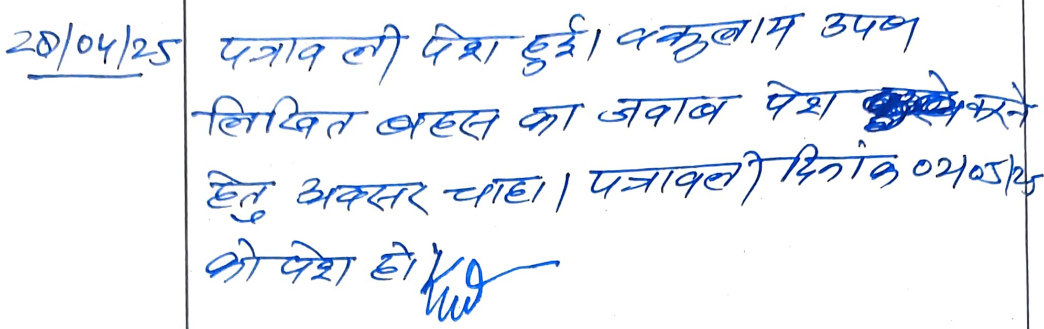 28/04/25 पत्रावली पेश हुई। वकुलाय उपण
लिखित बहस का जवाब पेश करने
हेतु अवसर चाहा। पत्रावली दिनांक 02/05/25
को पेश हो।